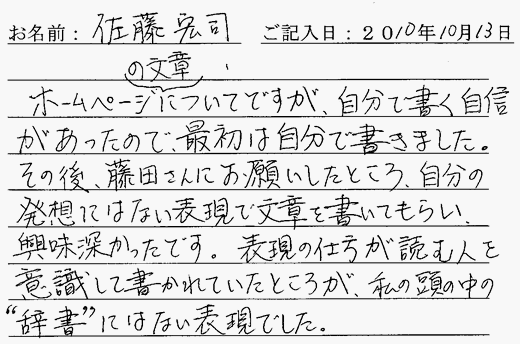 お名前：佐藤宏司　ご記入日：２０１０年１０月１３日
の文章
ホームページについてですが、自分で書く自信
があったので、最初は自分で書きました。
その後、藤田さんにお願いしたところ、自分の
発想にはない表現で文章を書いてもらい、
興味深かったです。表現の仕方が読む人を
意識して書かれていたところが、私の頭の中の
“辞書”にはない表現でした。